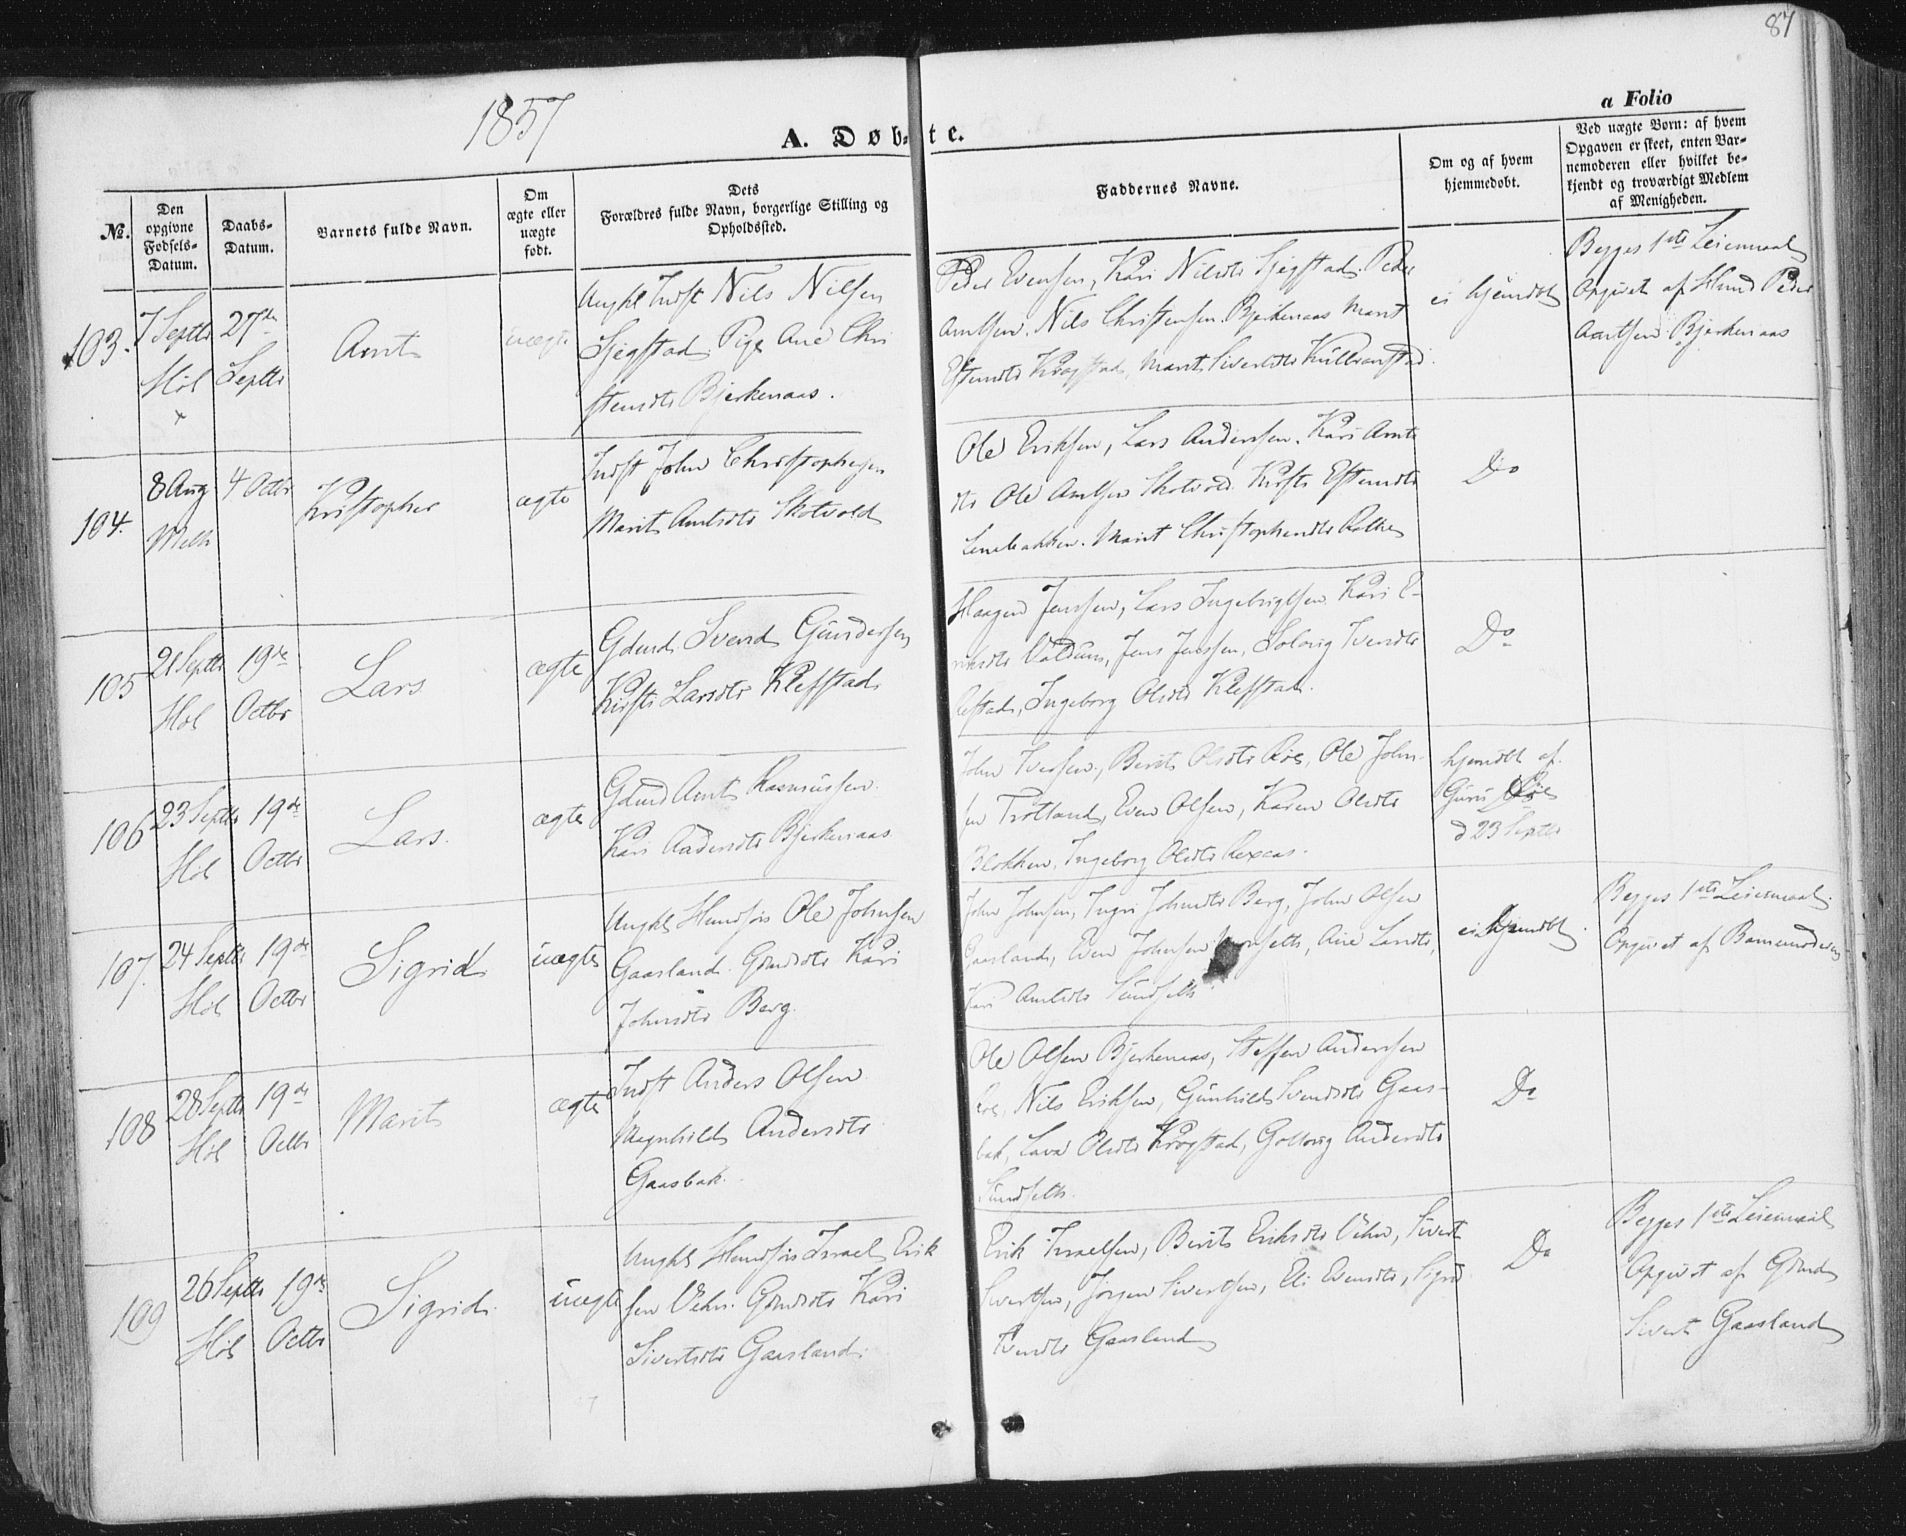 87
1857
a Folio
A. Døbte.
No.
Den opgivne Fødsels-Datum.
Daabs-Datum.
Barnets fulde Navn.
Om ægte eller uægte født.
Dets Forældres fulde Navn, borgerlige Stilling og Opholdssted.
Faddernes Navne.
Om og af hvem hjemmedøbt.
Ved uægte Børn: af hvem Opgaven er skeet, enten Barnemoderen eller hvilket bekjendt og troværdigt Medlem af Menigheden.
103.
7 Septbr
Høl
27de
Septbr
Arnt
uægte
Ungkl Indst Nils Nilsen
Sjegstad. Pige Ane Chri
stensdtr Bjerkenaas.
Peder Evensen, Kari Nilsdtr Sjegstad. Peder
Arntsen. Nils Christensen. Bjerkenaas Marit
Estensdtr Krogstad, Marit Sivertsdtr
ei hjemdbt
Begges 1ste Leiermaal
Opgivet af Husmd Peder
Arntsen Bjerkenaas
104.
8 Aug
Melh
4 Octbr
Kristopher
ægte
Indst John Christophersen
Marit Arntsdtr Skotvold
Ole Eriksen, Lars Andersen. Kari Arnts
dtr Ole Arntsen Skotvold. Kirsti Estensdtr
Lenebakken. Marit Christophersdtr
Do
105
21 Septbr
Høl
19de
Octbr
Lars
ægte
Gdmd. Svend Gundersen
Kirsti Larsdtr Kleffstad
Haagen Jensen, Lars Ingebrigtsen. Kari E-
riksdtr Valdum, Jens Jensen, Solovig Svendsdtr
Ingeborg Olsdtr Kleffstad.
Do
106
23 Septbr
Høl
19de
Octbr
Lars.
ægte
Gdmd Arnt Rasmussen
Kari Andersdtr Bjerkenaas
John Iversen, Berit Olsdtr Røe, Ole John-
sen Trotland, Even Olsen, Karen Olsdtr
Blokken, Ingeborg Olsdtr
hjemdbt af
Guru Røe
d 23 Septbr
107.
24 Septbr
Høl
19de
Octbr
Sigrid
uægte
Ungkl Husmdsøn Ole Johnsen
Gaasland. Gdmdsdtr Kari
Johnsdtr Berg.
John Johnsen, Ingri Johnsdtr Berg, John Olsen
Gaasland, Even Johnsen
Kari Arntsdtr Sundseth
ei hjemdbt.
Begges 1ste Leiermaal.
Opgivet af Barnemoderen
108
28 Septbr
Høl
19de
Octbr
Marit
ægte
Indst Anders Olsen
Magnhild Andersdtr
Gaasbak.
Ole Olsen Bjerkenaas, Steffen Andersen
Røe, Nils Eriksen, Gunhild Svendsdtr Gaas-
bak, Lava Olsdtr Krogstad, Gollovig Andersdtr
Sundseth.
Do
109
26 Septbr
Høl
19de
Octbr
Sigrid.
uægte
Ungkl Husmdsøn Israel Erik
sen Vehn. Gdmdsdtr Kari
Sivertsdtr Gaasland.
Erik Israelsen, Berit Eriksdtr Vehn, Sivert
Sivertsen, Jørgen Sivertsen, Eli Evensdtr, Sigrid
Gaasland
Do
Begges 1ste Leiermaal
Opgivet af Gdmd
Sivert Gaasland